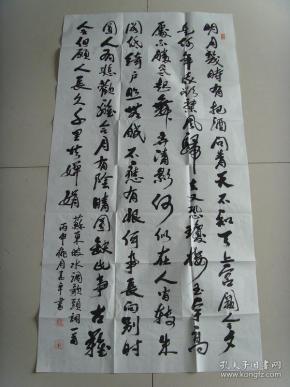 明月几时有把酒问青天不知天上宫阙今夕
是何年我欲乘风归去又恐琼楼玉宇高
处不胜寒起舞弄清影何似在人间转朱
阁低绮户照无眠不应有恨何事长向别时
圆人有悲欢离合月有阴晴圆缺此事古难
全但愿人长久千里共婵娟
苏东坡水调歌头词一首
丙申
书